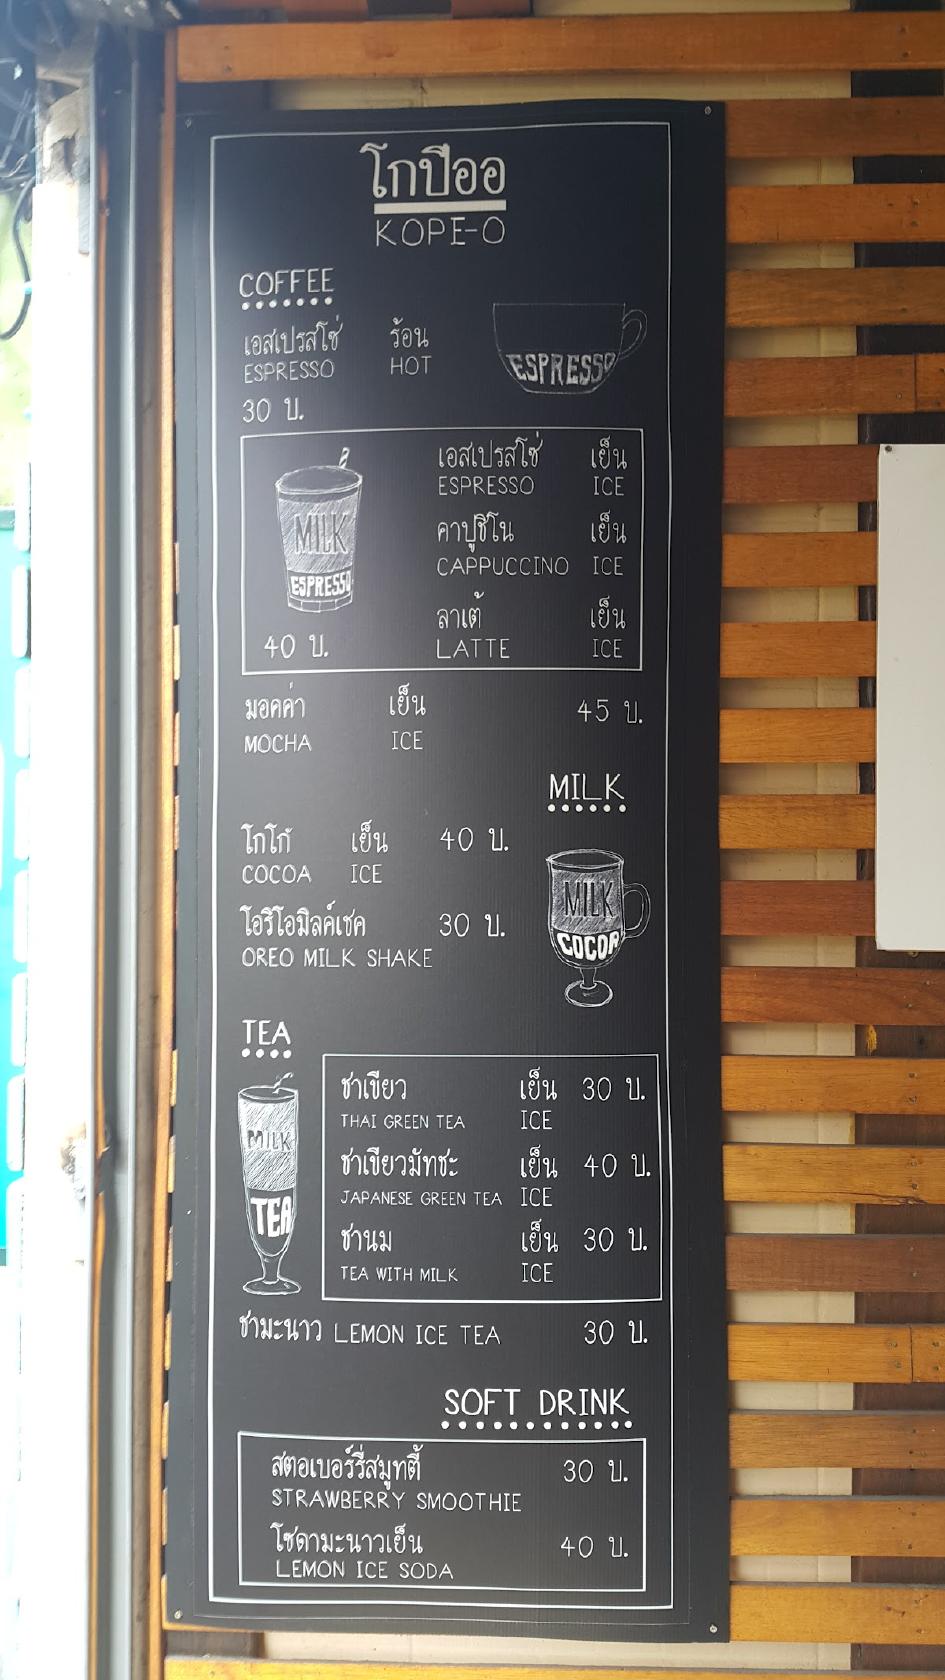 โกปีออ
KOPE-O
COFFEE
เอสเปรสโซ่ ร้อน
ESPRESSO HOT
ESPRESSO
30 บ.
เอสเปรสโซ่ เย็น
ESPRESSO ICE
MILK
ESPRESSO
คาปูชิโน เย็น
CAPPUCCINO ICE
ลาเต้ เย็น
LATTE ICE
40 บ.
มอคค่า เย็น 45 บ.
MOCHA ICE
MILK
โกโก้ เย็น 40 บ.
COCOA ICE
MILK
COCOA
โอริโอมิลค์เชค 30 บ.
OREO MILK SHAKE
TEA
MILK
TEA
ชาเขียว เย็น 30 บ.
THAI GREEN TEA ICE
ชาเขียวมัทชะ เย็น 40 บ.
JAPANESE GREEN TEA ICE
ชานม เย็น 30 บ.
TEA WITH MILK ICE
ชามะนาว LEMON ICE TEA 30 บ.
SOFT DRINK
สตอเบอร์รี่สมูทตี้ 30 บ.
STRAWBERRY SMOOTHIE
โซดามะนาวเย็น 40 บ.
LEMON ICE SODA